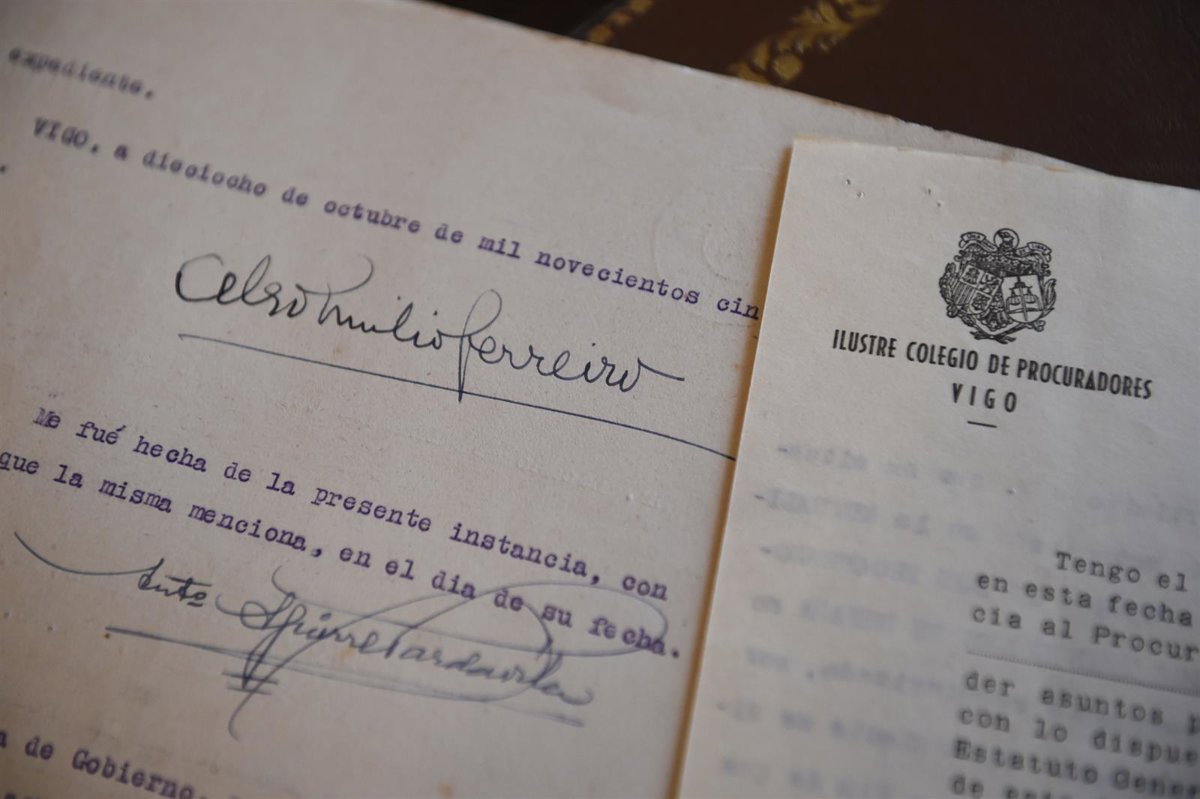 expediente.
VIGO, a dieciocho de octubre de mil novecientos cin
Celso Emilio Ferreiro
Me fué hecha de la presente instancia, con
que la misma menciona, en el dia de su fecha.
de Gobierno.
ILUSTRE COLEGIO DE PROCURADORES
VIGO
Tengo el
en esta fecha
cia al Procur
der asuntos p
con lo dispue
Estatuto Gene